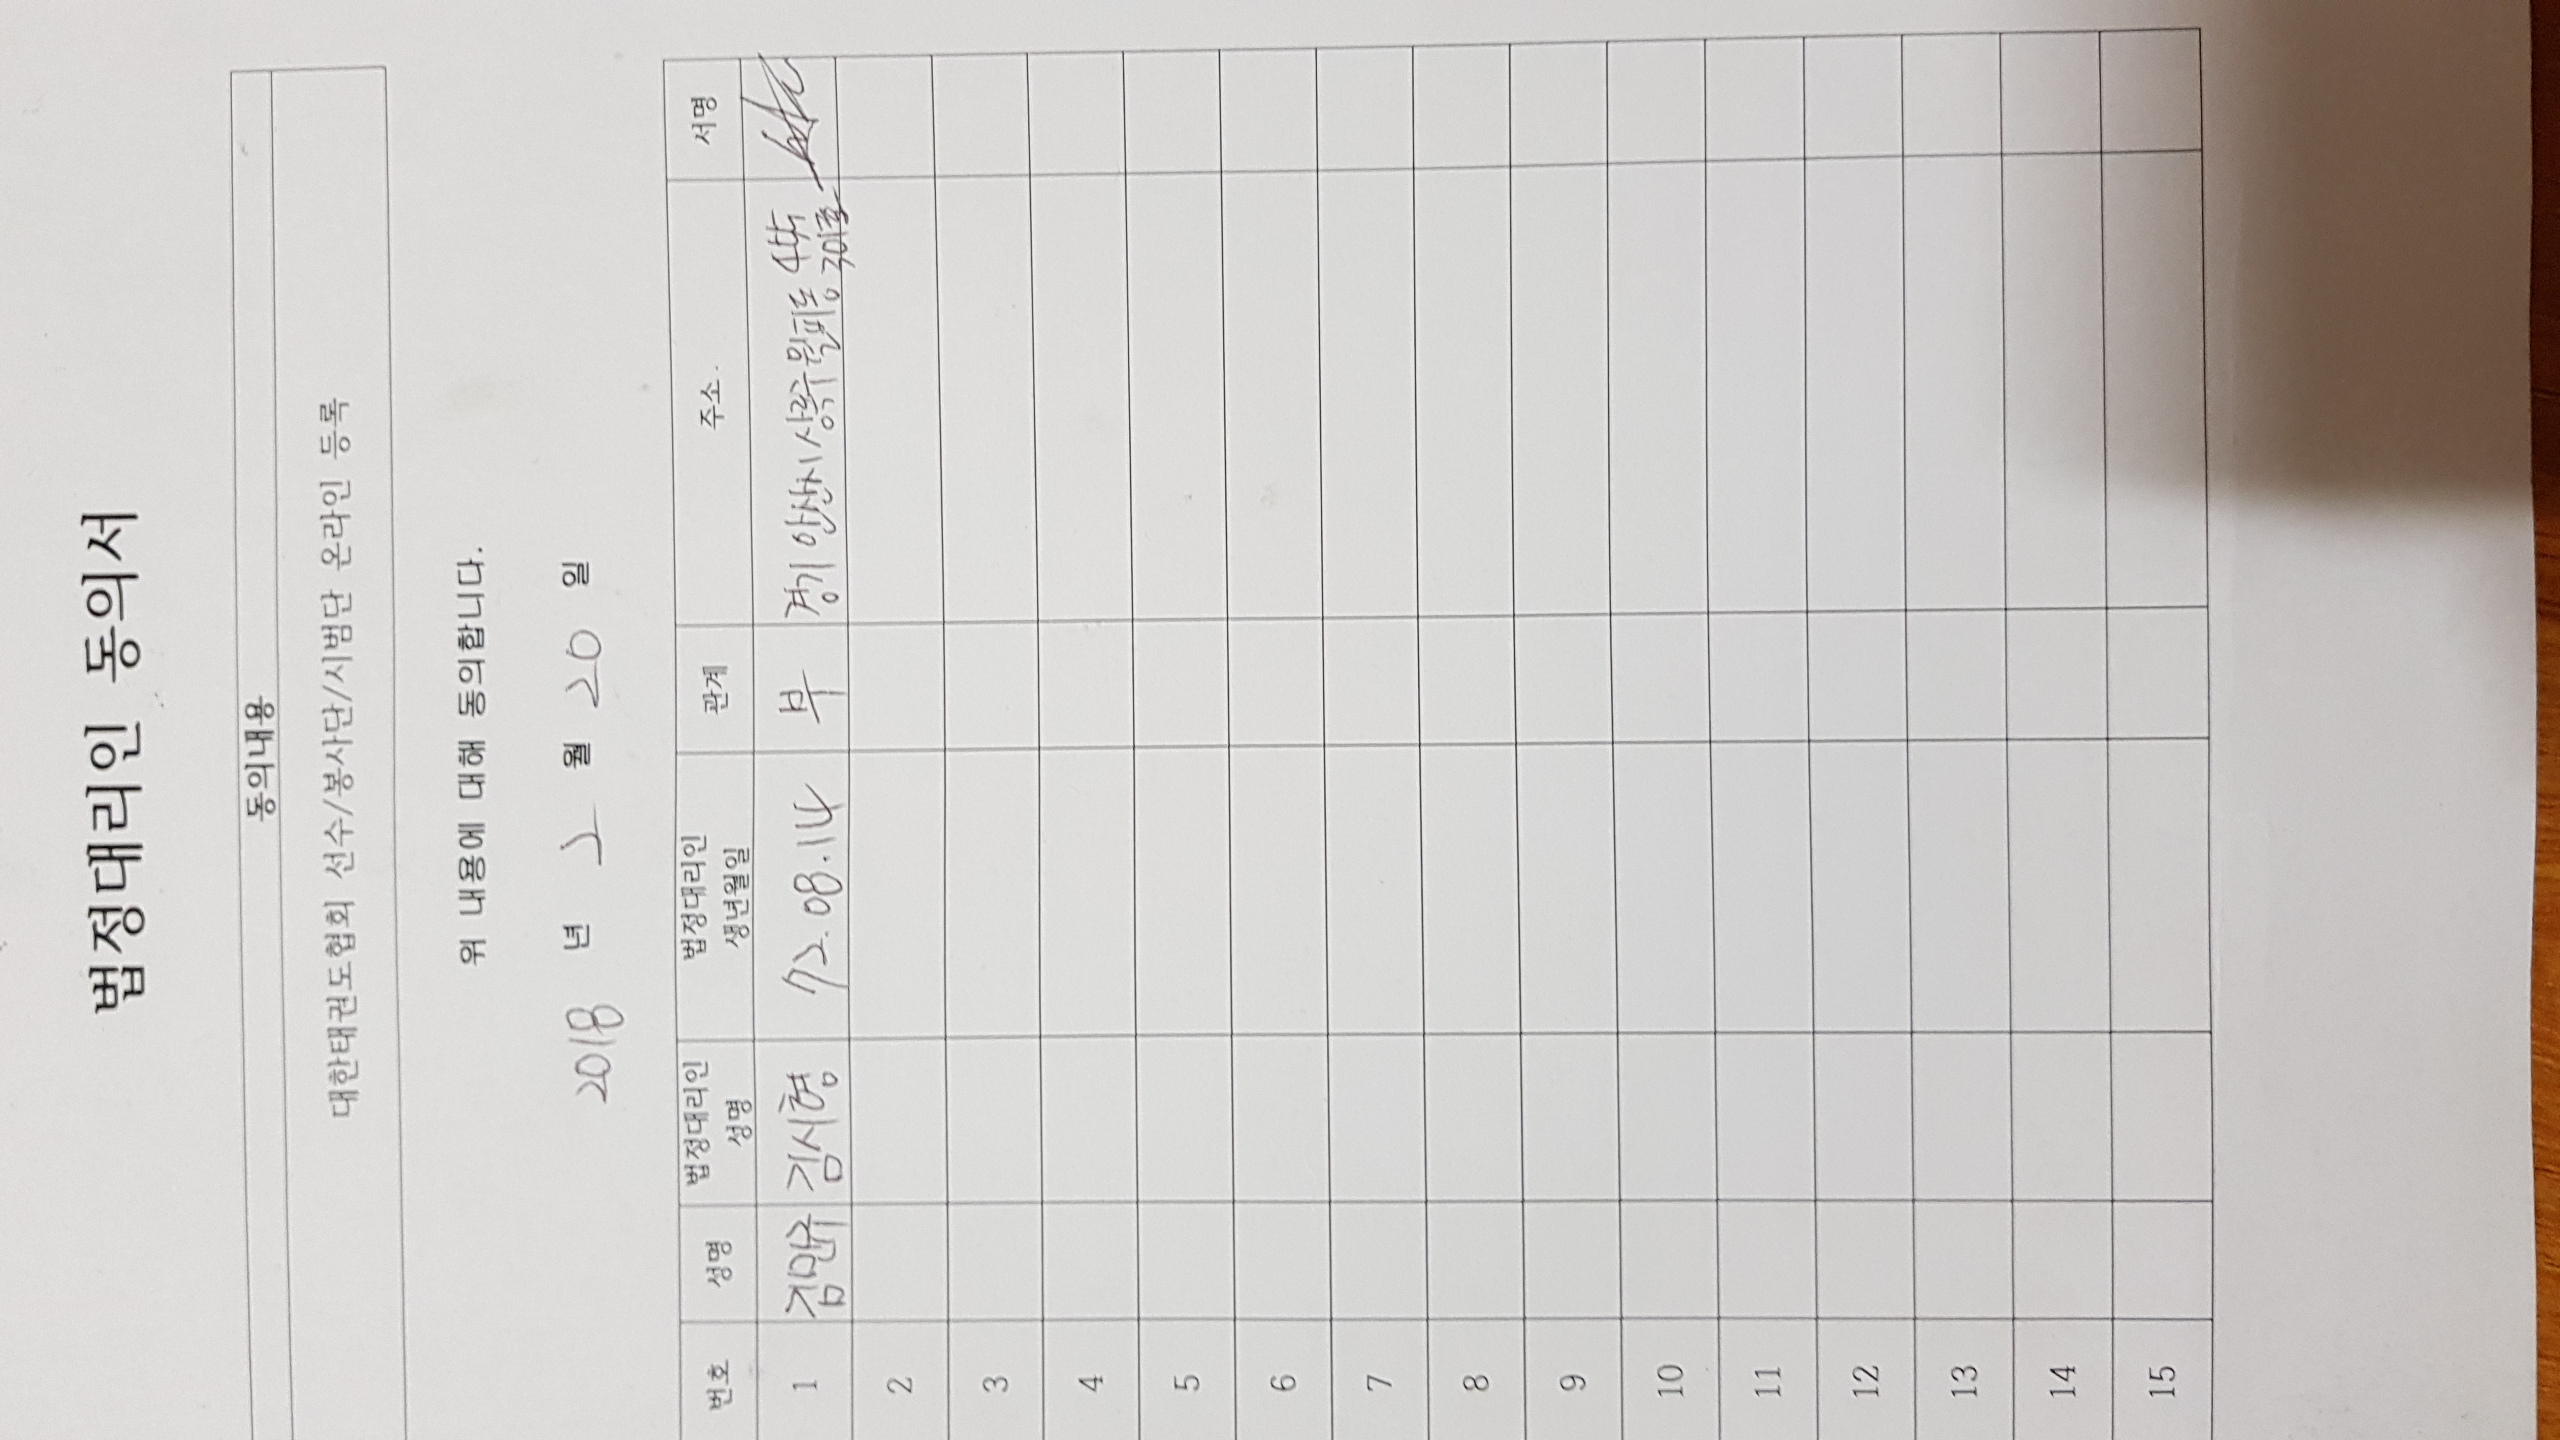 법정대리인 동의서
동의내용
대한태권도협회 선수/봉사단/시범단 온라인 등록
위 내용에 대해 동의합니다.
2018 년 2 월 20 일
번호 성명 법정대리인 성명 법정대리인 생년월일 관계 주소. 서명
1 김민규 김시형 72.08.14 부 경기 안산시 상록구
2
3
4
5
6
7
8
9
10
11
12
13
14
15